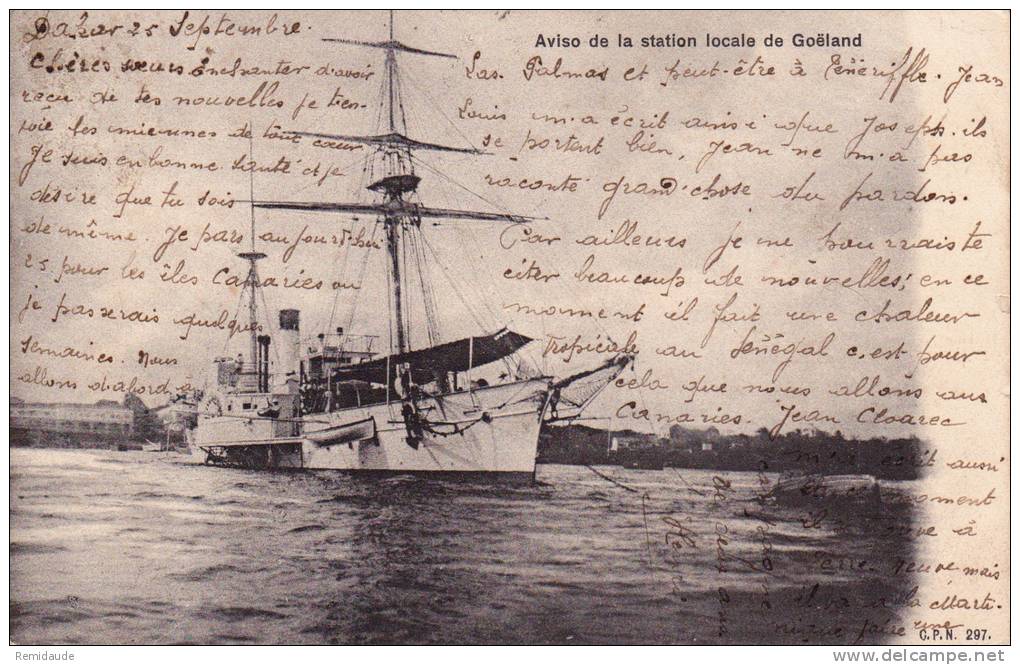 Aviso de la station locale de Goëland
Dakar 25 Septembre.
Chères sœurs Enchanter d'avoir
reçu de tes nouvelles je t'en-
voie les miennes de tout cœur
Je suis en bonne santé et je
désire que tu sois
de même. Je pars aujourd'hui
25 pour les îles Canaries ou
je passerais quelques
semaines. Nous
allons d'abord a
Las Palmas et peut-être à Ténériffle. Jean
Louis m'a écrit ainsi que Joseph. ils
se portent bien, Jean ne m'a pas
raconté grand-chose du pardon.
Par ailleurs je ne pourrais te
citer beaucoup de nouvelles; en ce
moment il fait une chaleur
Tropicale au Sénégal c'est pour
cela que nous allons aus
Canaries. Jean Cloarec
m'a écrit aussi
moment
il à
Terre-neuve mais
il va a la Marti-
nique faire une
campagne
de deux ans
C.P.N. 297.
Remidaude
www.delcampe.net